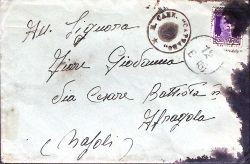 All. Signora
Fiore Giovanna
Via Cesare Battisti n.
Afragola
(Napoli)